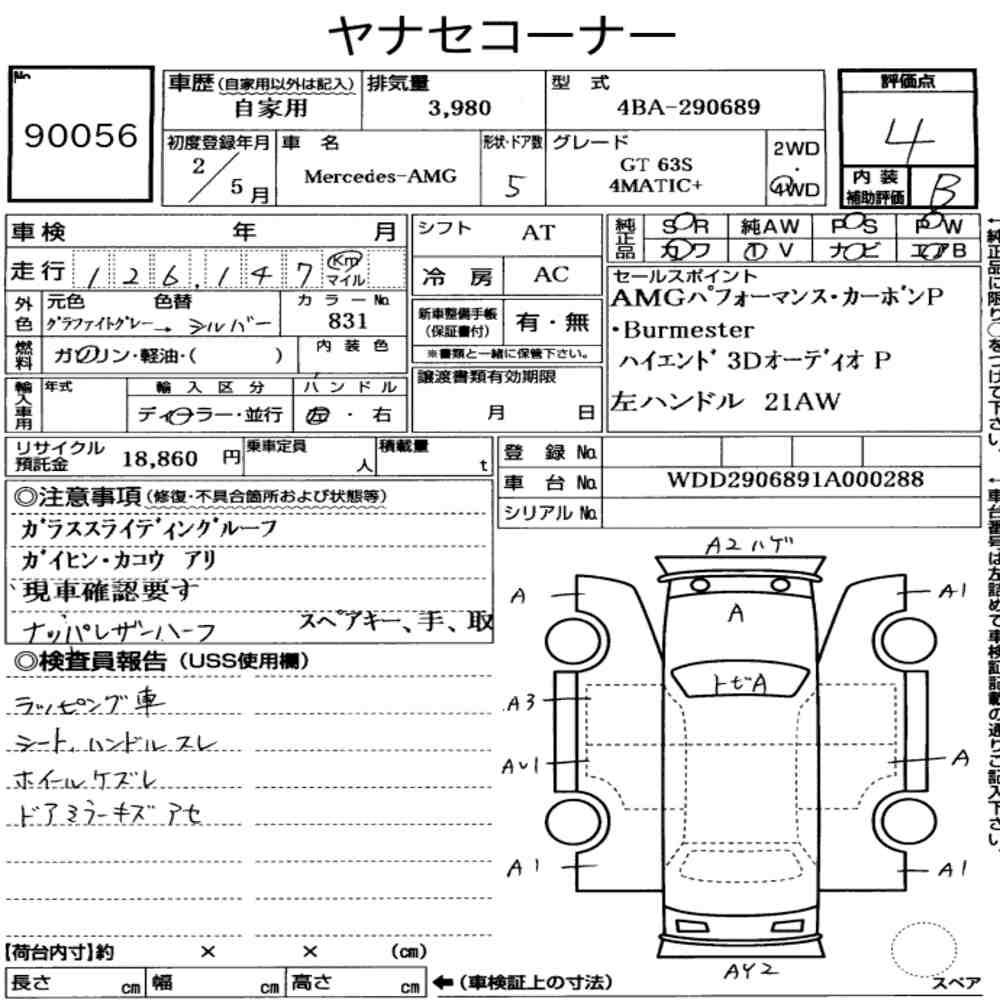 ヤナセコーナー
No.
90056
車歴 (自家用以外は記入)
自家用
排気量
3,980
型 式
4BA-290689
評価点
4
内 装
補助評価
B
初度登録年月
2/5月
車 名
Mercedes-AMG
形状・ドア数
5
グレード
GT 63S
4MATIC+
2WD
・
4WD
車検 年 月
走行 126,147 Km マイル
シフト AT
冷 房 AC
純正品
SR 純AW PS PW
カワ TV ナビ エアB
外色
元色 色替
グラファイトグレー→シルバー
カラーNo.
831
新車整備手帳
(保証書付)
有・無
※書類と一緒に保管下さい。
燃料
ガソリン・軽油・( )
内 装 色
セールスポイント
AMGパフォーマンス・カーボンP
・Burmester
ハイエンド 3Dオーディオ P
左ハンドル 21AW
輸入車用
年式
輸 入 区 分
ディーラー・並行
ハ ン ド ル
左・右
譲渡書類有効期限
月 日
リサイクル
預託金
18,860 円
乗車定員
人
積載量
t
登 録 No.
車 台 No. WDD2906891A000288
シリアル No.
◎注意事項 (修復・不具合箇所および状態等)
ガラススライディングルーフ
ガイヒン・カコウ アリ
現車確認要す
ナッパレザーハーフ
スペアキー、手、取
◎検査員報告 (USS使用欄)
ラッピング車
シート、ハンドルスレ
ホイールケズレ
ドアミラーキズ アセ
A2ハゲ
A
A1
A
トビA
A3
AU1
A
A1
A1
AY2
スペア
【荷台内寸】約 × × (cm)
長さ cm 幅 cm 高さ cm
←(車検証上の寸法)
←純正品に限り○をつけて下さい。
←車台番号は左詰めで車検証記載の通りご記入下さい。